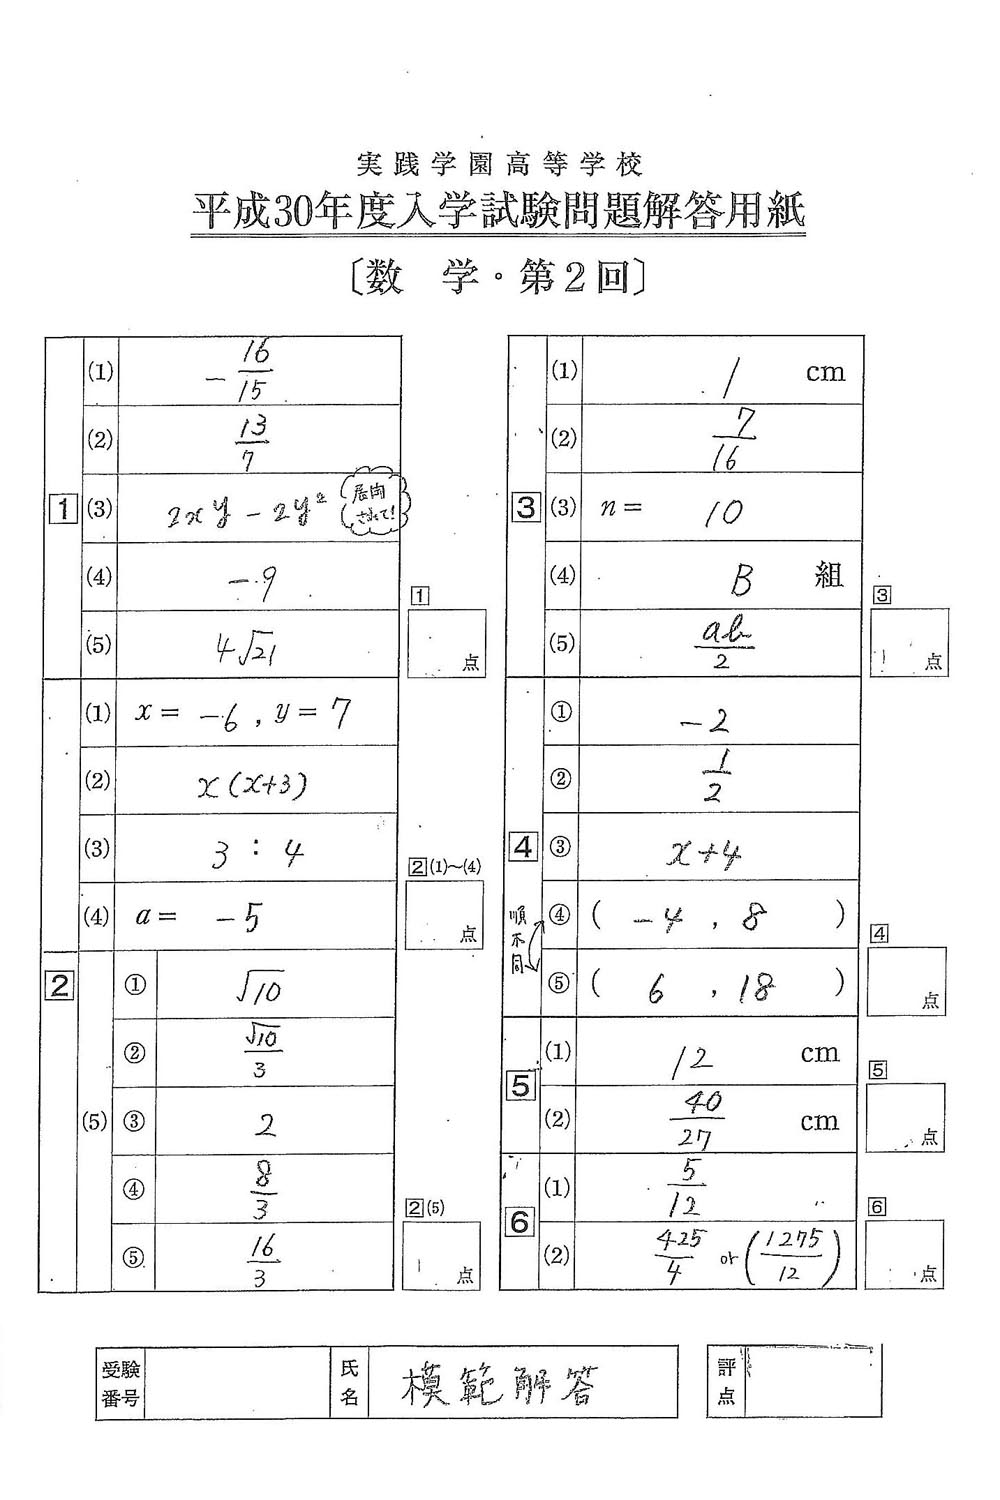 実践学園高等学校
平成30年度入学試験問題解答用紙
〔数　学・第２回〕
1
(1) －16/15
(2) 13/7
(3) 2xy－2y² 展開されて!
(4) －9
(5) 4√21
1
点
2
(1) x＝ －6 , y＝ 7
(2) x(x+3)
(3) 3 : 4
(4) a＝ －5
2(1)～(4)
点
(5)
① √10
② √10/3
③ 2
④ 8/3
⑤ 16/3
2(5)
点
3
(1) 1 cm
(2) 7/16
(3) n＝ 10
(4) B 組
(5) ab/2
3
点
4
① －2
② 1/2
③ x+4
④ ( －4 , 8 )
順不同
⑤ ( 6 , 18 )
4
点
5
(1) 12 cm
(2) 40/27 cm
5
点
6
(1) 5/12
(2) 425/4 or (1275/12)
6
点
受験番号
氏名 模範解答
評点